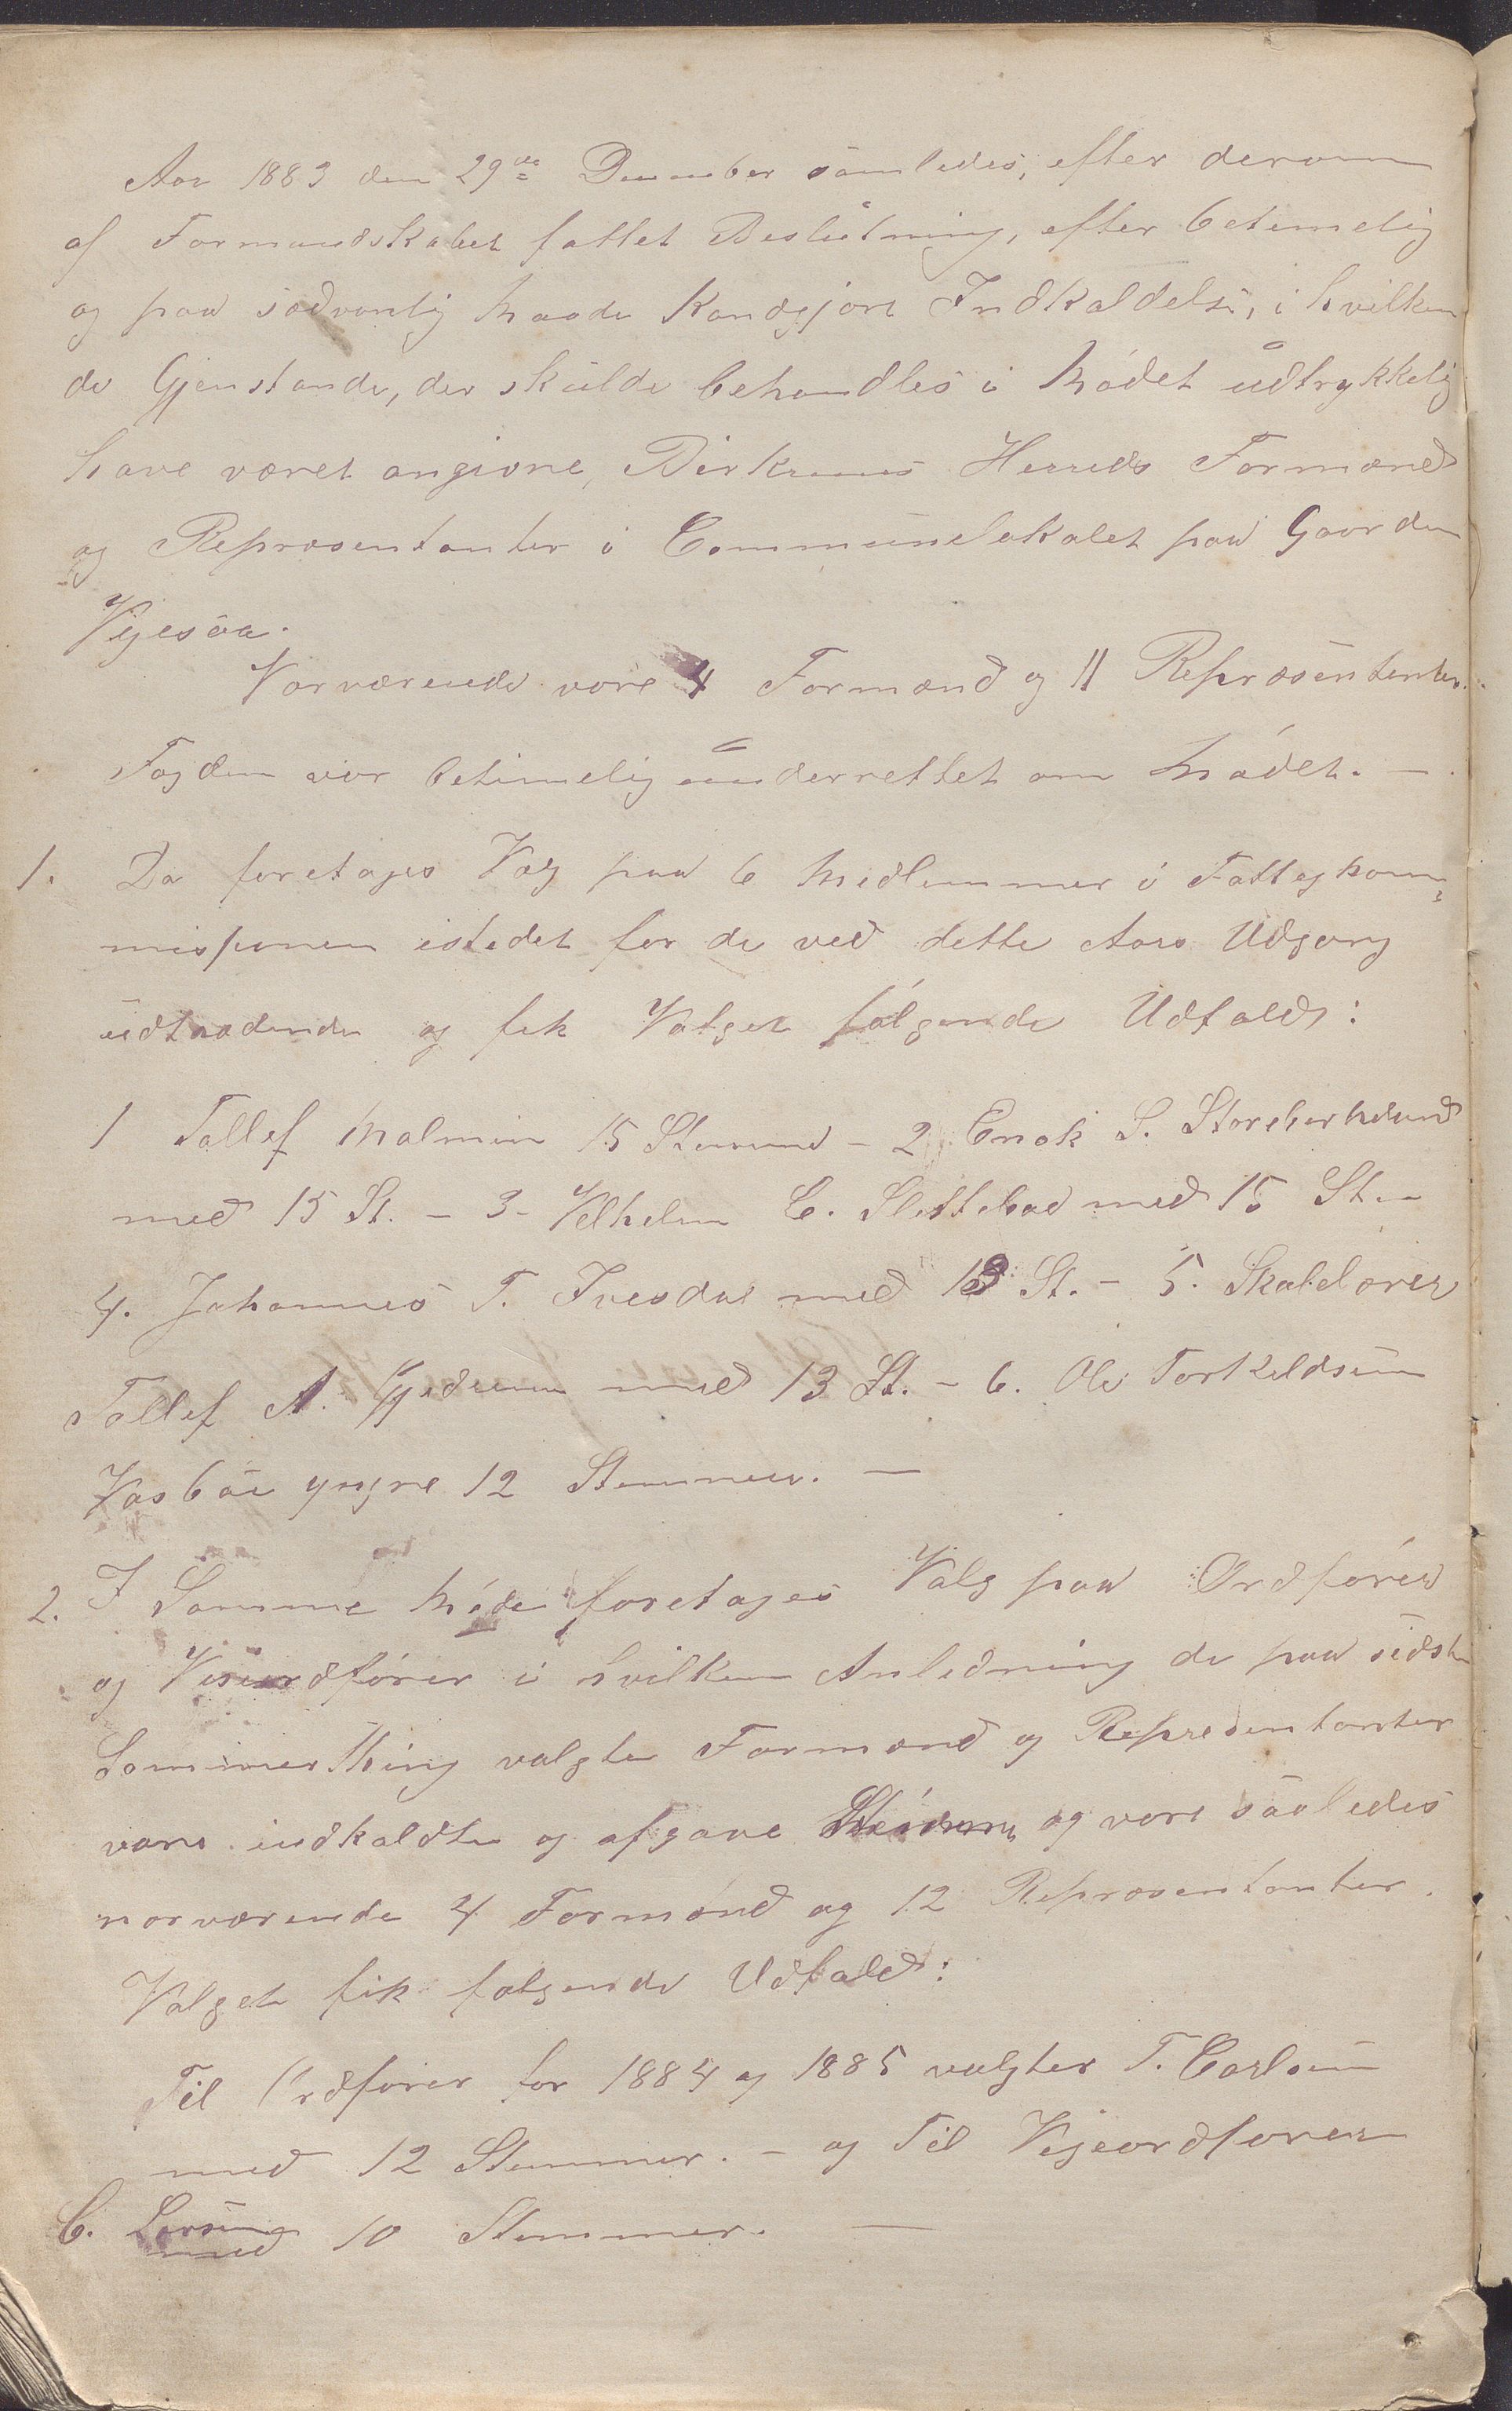 Aar 1883 den 29de December samledes, efter derom
af Formandskabet fattet Beslutning, efter betimelig
og paa sædvanlig Maade Kundgjort Indkaldelse, i hvilken
de Gjenstande, der skulde behandles i Mødet udtrykkelig
have været angivne, Birkrems Herreds Formænd
og Repræsentanter i Communelokalet paa Gaarden
Vigesaa.
Nærværende vare 4 Formænd og 11 Repræsentanter.
Fogden var betimelig underrettet om Mødet. —
1. Da foretages Valg paa 6 Medlemmer i Fattigkom-
missionen istedet for de ved dette Aars Udgang
udtrædende og fik Valget følgende Udfald:
1 Tollef Malmin 15 Stemmer – 2 Enok S. Storeberhelund
med 15 St. – 3. Vilhelm C. Slettebøe med 15 St. –
4. Johannes T. Ivesdal med 13 St. – 5. Skolelærer
Tollef A. Gjedrem med 13 St. – 6. Ole Torkeldsen
Vasbøe yngre 12 Stemmer. —
2. I Samme Møde foretages Valg paa Ordfører
og Viseordfører i hvilken Anledning de paa sidste
Sommerthing valgte Formænd og Repræsentanter
vare indkaldte og afgave Stemme og vare saaledes
nærværende 4 Formænd og 12 Repræsentanter.
Valget fik følgende Udfald:
Til Ordfører for 1884 og 1885 valgtes T. Carlsen
med 12 Stemmer. – og Til Viseordfører
C. Larsen med 10 Stemmer. —